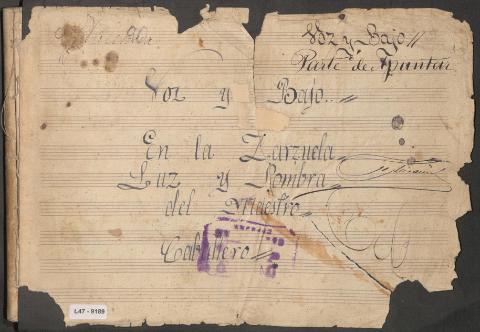 Voz y Bajo
Parte de Apuntar
Voz y Bajo
En la Zarzuela
Luz y Sombra
del Maestro
Caballero
L47 - 9189